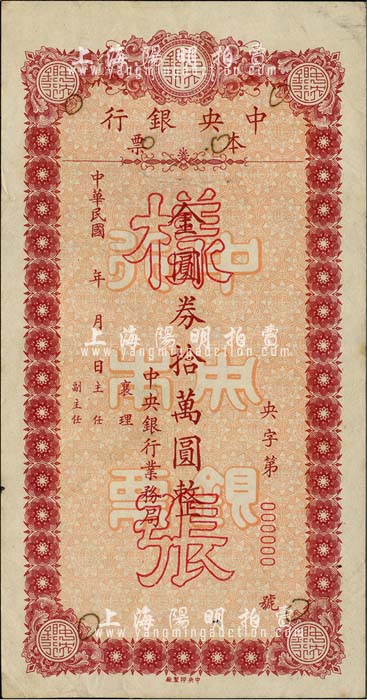 上海陽明拍賣
www.yangmingauction.com
中央銀行
本票
央字第000000號
金圓券拾萬圓整
中央銀行業務局
襄理
主任
副主任
中華民國 年 月 日
樣張
中央
本票
銀行
上海陽明拍賣
www.yangmingauction.com
上海陽明拍賣
www.yangmingauction.com
中央印製廠